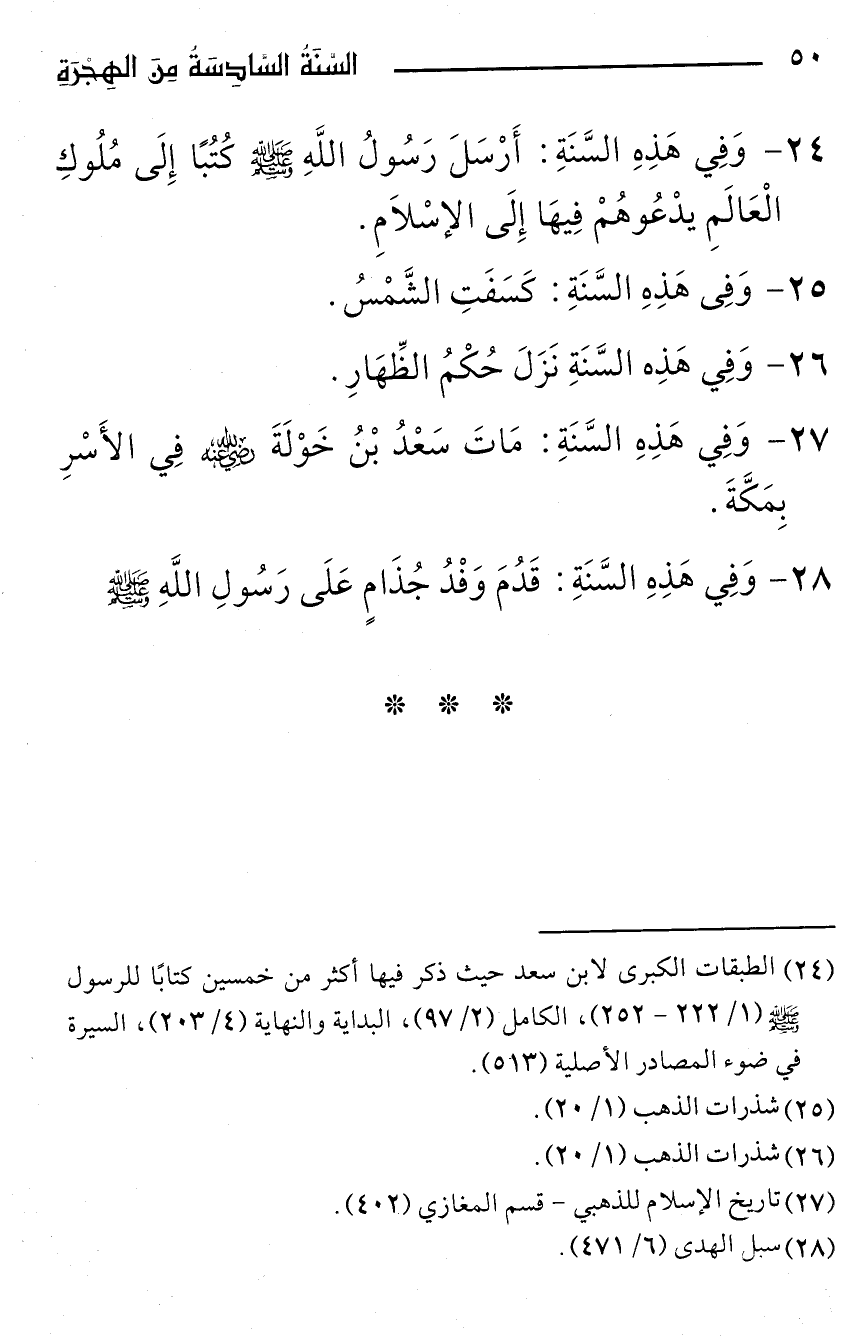 ٥٠ السَّنَةُ السَّادِسَةُ مِنَ الهِجْرَةِ
٢٤- وَفِي هَذِهِ السَّنَةِ: أَرْسَلَ رَسُولُ اللَّهِ ﷺ كُتُبًا إِلَى مُلُوكِ
الْعَالَمِ يدْعُوهُمْ فِيهَا إِلَى الإسْلاَمِ.
٢٥- وَفِى هَذِهِ السَّنَةِ: كَسَفَتِ الشَّمْسُ.
٢٦- وَفِي هَذِه السَّنَةِ نَزَلَ حُكْمُ الظِّهَارِ.
٢٧- وَفِي هَذِهِ السَّنَةِ: مَاتَ سَعْدُ بْنُ خَوْلَةَ رضي الله عنه فِي الأَسْرِ
بِمَكَّةَ.
٢٨- وَفِي هَذِهِ السَّنَةِ: قَدُمَ وَفْدُ جُذَامٍ عَلَى رَسُولِ اللَّهِ ﷺ
* * *
(٢٤) الطبقات الكبرى لابن سعد حيث ذكر فيها أكثر من خمسين كتابًا للرسول
ﷺ (١/ ٢٢٢ - ٢٥٢)، الكامل (٢/ ٩٧)، البداية والنهاية (٤/ ٢٠٣)، السيرة
في ضوء المصادر الأصلية (٥١٣).
(٢٥) شذرات الذهب (١/ ٢٠).
(٢٦) شذرات الذهب (١/ ٢٠).
(٢٧) تاريخ الإسلام للذهبي - قسم المغازي (٤٠٢).
(٢٨) سبل الهدى (٦/ ٤٧١).